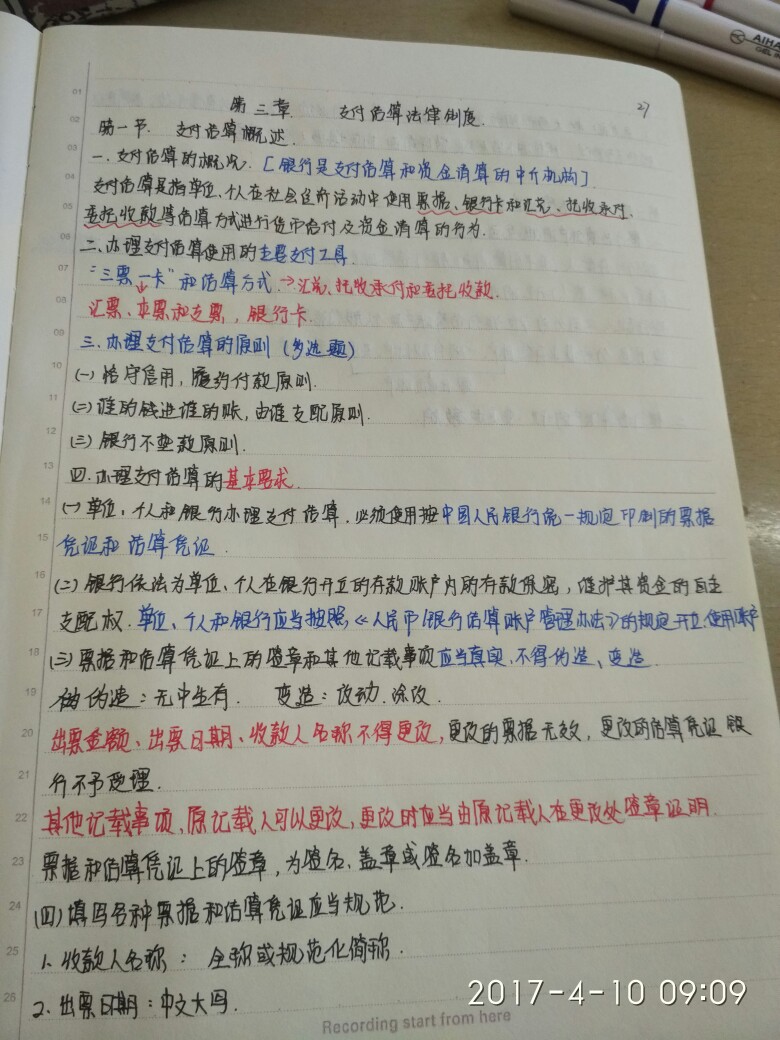 AIHA
27
第三章. 支付结算法律制度.
第一节. 支付结算概述.
一.支付结算的概况. [银行是支付结算和资金清算的中介机构].
支付结算是指单位、个人在社会经济活动中使用票据、银行卡和汇兑、托收承付、
委托收款等结算方式进行货币给付及资金清算的行为.
二、办理支付结算使用的主要支付工具
"三票一卡"和结算方式.→汇兑、托收承付和委托收款.
汇票、本票和支票,银行卡.
三.办理支付结算的原则(多选题)
(一)恪守信用,履约付款原则.
(二)谁的钱进谁的账,由谁支配原则.
(三)银行不垫款原则.
四.办理支付结算的基本要求.
(一)单位、个人和银行办理支付结算,必须使用按中国人民银行统一规定印制的票据
凭证和结算凭证.
(二)银行依法为单位、个人在银行开立的存款账户内的存款保密,维护其资金的自主
支配权.单位、个人和银行应当按照《人民币银行结算账户管理办法》的规定开立、使用账户
(三)票据和结算凭证上的签章和其他记载事项应当真实,不得伪造、变造.
伪造:无中生有. 变造:改动.涂改.
出票金额、出票日期、收款人名称不得更改,更改的票据无效,更改的结算凭证银
行不予受理.
其他记载事项,原记载人可以更改,更改时应当由原记载人在更改处签章证明.
票据和结算凭证上的签章,为签名、盖章或签名加盖章.
(四)填写各种票据和结算凭证应当规范.
1.收款人名称:全称或规范化简称.
2.出票日期:中文大写.
01
02
03
04
05
06
07
08
09
10
11
12
13
14
15
16
17
18
19
20
21
22
23
24
25
26
Recording start from here
2017-4-10 09:09